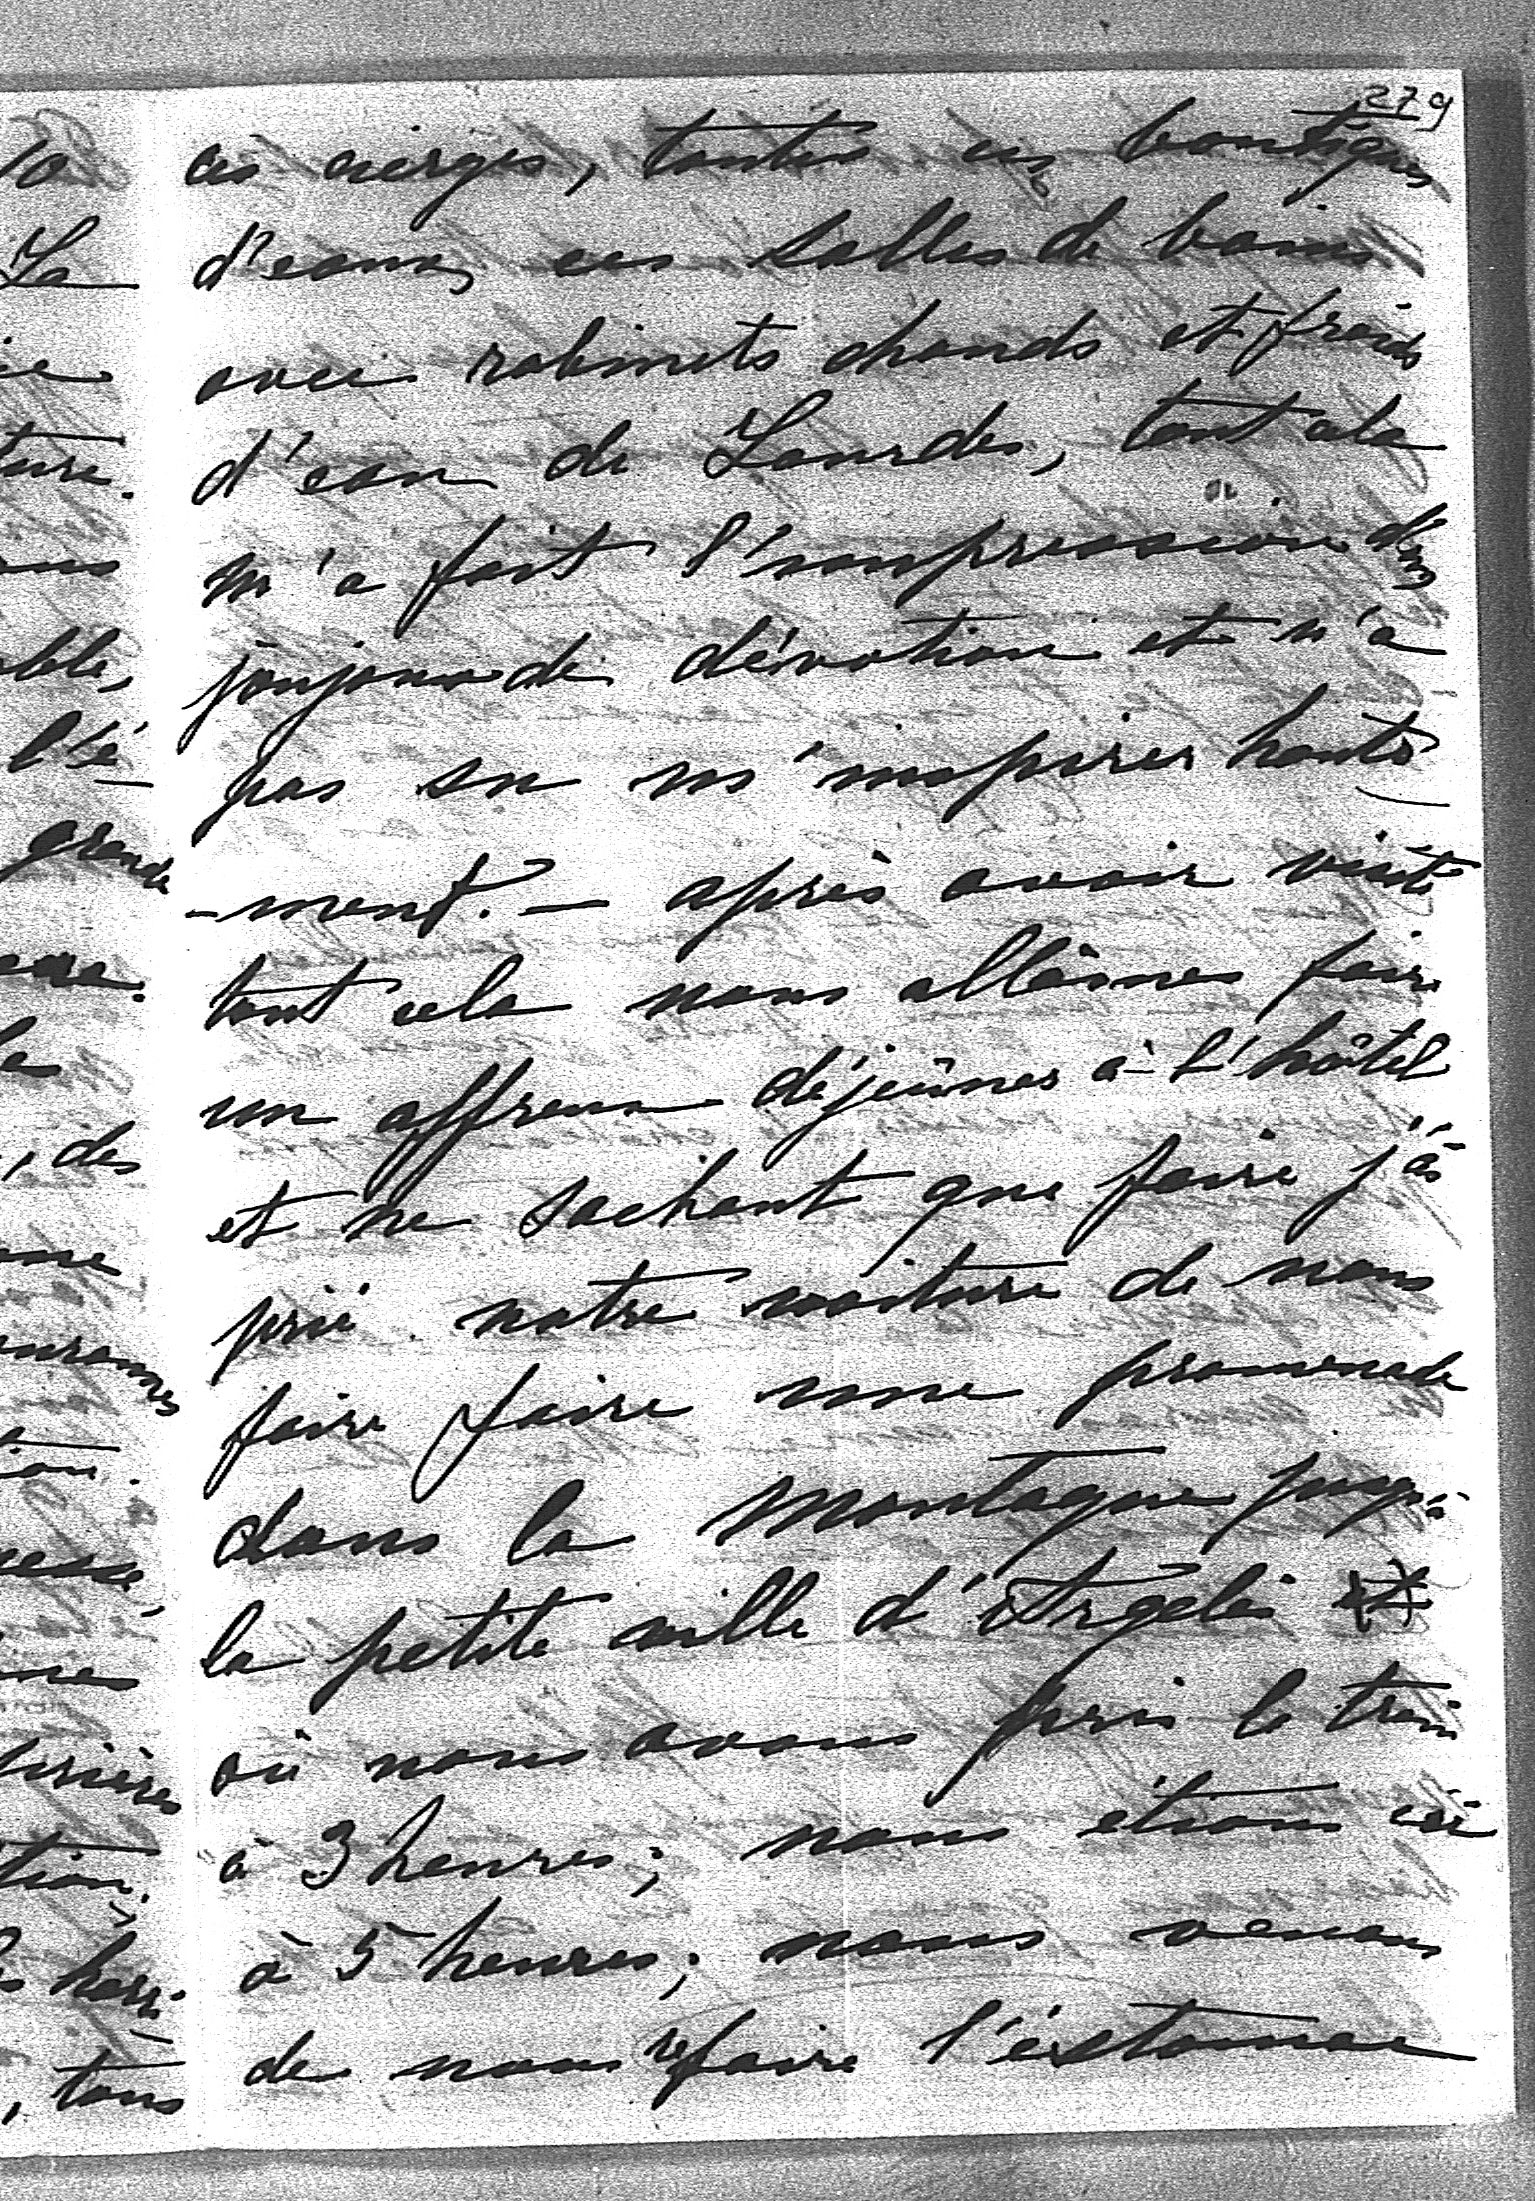 279
ces cierges, toutes ces boutiques
d'eaux, ces salles de bains
avec robinets chauds et froids
d'eau de Lourdes, tout cela
m'a fait l'impression d'un
joujou de dévotion et n'a
pas su m'inspirer haute
-ment. - après avoir visité
tout cela nous allâmes faire
un affreux déjeûner à l'hôtel
et ne sachant que faire j'ai
prié notre voiture de nous
faire faire une promenade
dans la montagne jusqu'à
la petite ville d'Argelès et
où nous avons pris le train
à 3 heures; nous étions ici
à 5 heures; nous venons
de nous refaire l'éstomac
La
grande
, des
, tous